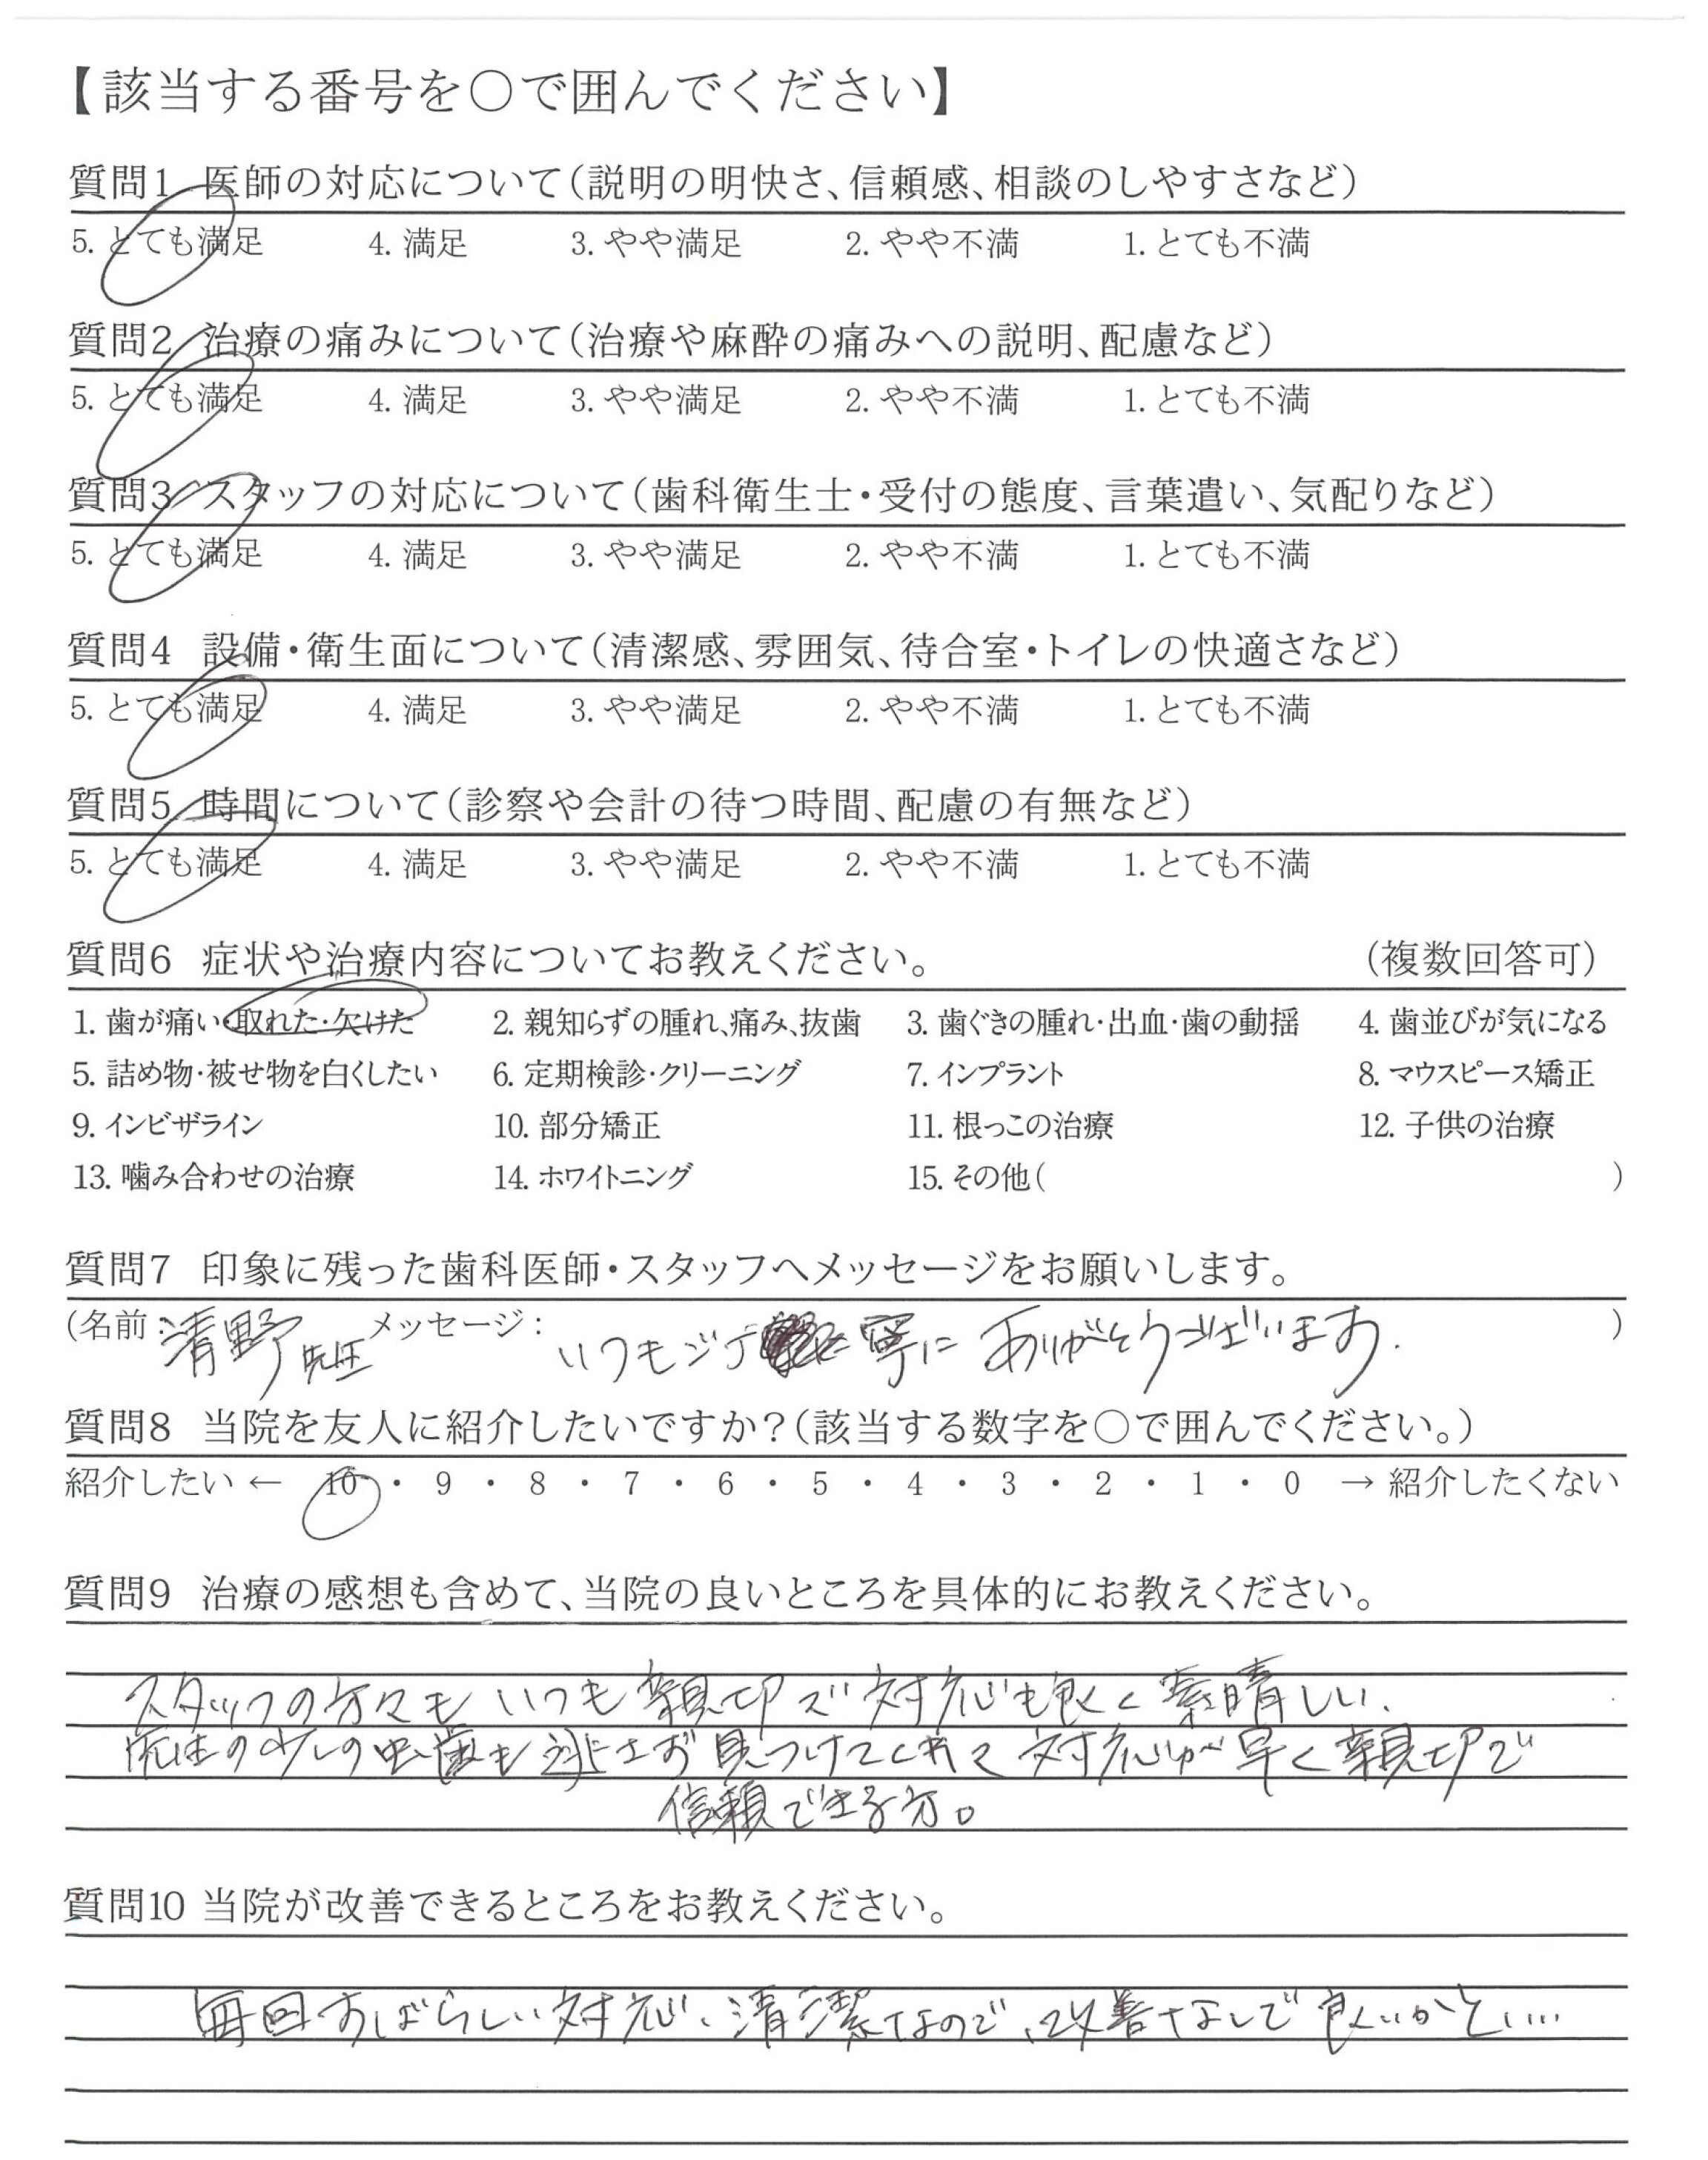 【該当する番号を〇で囲んでください】
質問1 医師の対応について（説明の明快さ、信頼感、相談のしやすさなど）
5. とても満足 4. 満足 3. やや満足 2. やや不満 1. とても不満
質問2 治療の痛みについて（治療や麻酔の痛みへの説明、配慮など）
5. とても満足 4. 満足 3. やや満足 2. やや不満 1. とても不満
質問3 スタッフの対応について（歯科衛生士・受付の態度、言葉遣い、気配りなど）
5. とても満足 4. 満足 3. やや満足 2. やや不満 1. とても不満
質問4 設備・衛生面について（清潔感、雰囲気、待合室・トイレの快適さなど）
5. とても満足 4. 満足 3. やや満足 2. やや不満 1. とても不満
質問5 時間について（診察や会計の待つ時間、配慮の有無など）
5. とても満足 4. 満足 3. やや満足 2. やや不満 1. とても不満
質問6 症状や治療内容についてお教えください。 （複数回答可）
1. 歯が痛い・取れた・欠けた 2. 親知らずの腫れ、痛み、抜歯 3. 歯ぐきの腫れ・出血・歯の動揺 4. 歯並びが気になる
5. 詰め物・被せ物を白くしたい 6. 定期検診・クリーニング 7. インプラント 8. マウスピース矯正
9. インビザライン 10. 部分矯正 11. 根っこの治療 12. 子供の治療
13. 噛み合わせの治療 14. ホワイトニング 15. その他（ ）
質問7 印象に残った歯科医師・スタッフへメッセージをお願いします。
（名前：清野先生 メッセージ：いつも丁寧に ありがとうございます. ）
質問8 当院を友人に紹介したいですか？（該当する数字を〇で囲んでください。）
紹介したい ← 10 ・ 9 ・ 8 ・ 7 ・ 6 ・ 5 ・ 4 ・ 3 ・ 2 ・ 1 ・ 0 → 紹介したくない
質問9 治療の感想も含めて、当院の良いところを具体的にお教えください。
スタッフの方々も いつも親切で 対応も良く 素晴しい.
先生の少しの虫歯も逃さず見つけてくれて 対応が早く親切で
信頼できる方。
質問10 当院が改善できるところをお教えください。
毎回すばらしい対応、清潔なので、改善なしで良いかと....